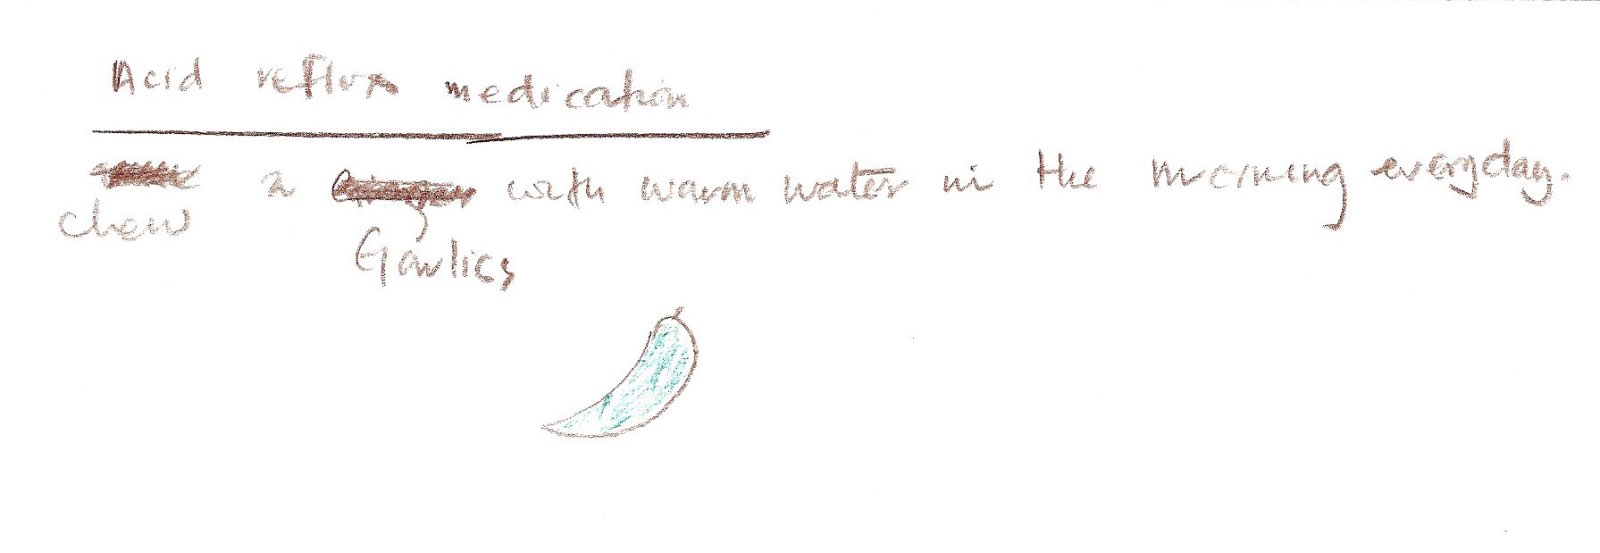 Acid reflux medication
a with warm water in the morning everyday.
chew
Garlics